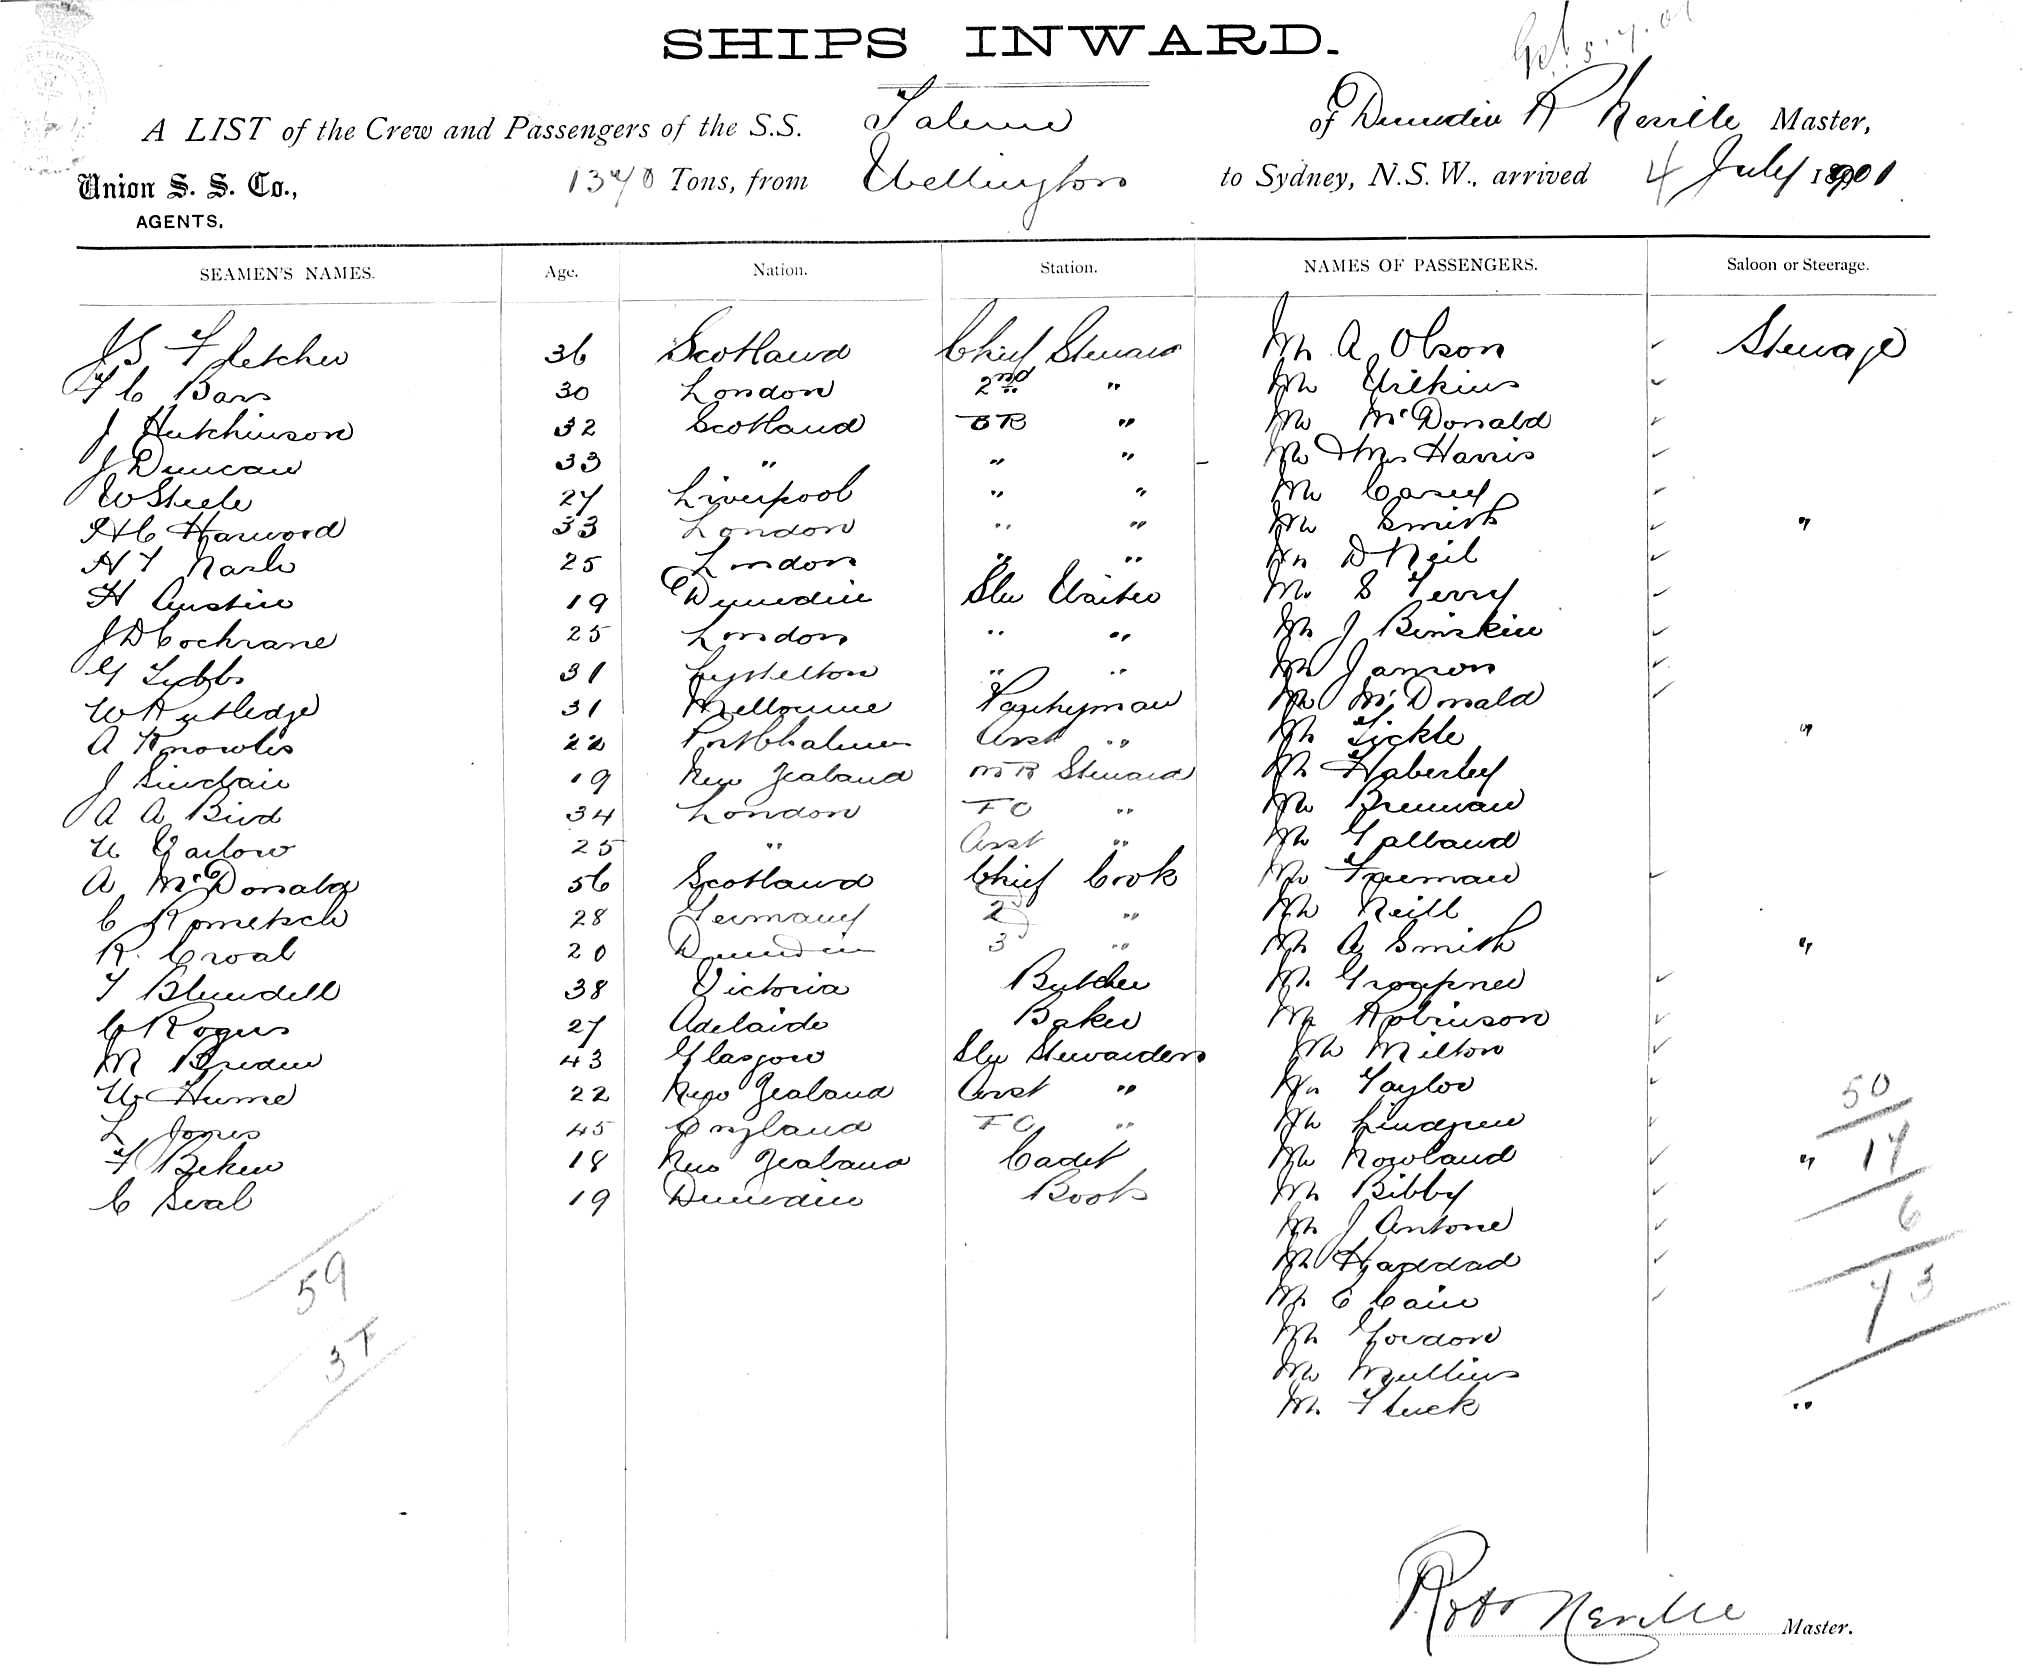 SHIPS INWARD.
A LIST of the Crew and Passengers of the S.S. Talune of Dunedin R Neville Master,
Union S. S. Co., 1370 Tons, from Wellington to Sydney, N.S.W., arrived 4 July 1901
AGENTS.
SEAMEN'S NAMES. Age. Nation. Station. NAMES OF PASSENGERS. Saloon or Steerage.
J S Fletcher 36 Scotland Chief Steward Mr A Olson Steerage
F C Barr 30 London 2nd " Mr Wilkins
J Hutchinson 32 Scotland BR " Mr McDonald
J Duncan 33 " " " Mr & Mrs Harris
W Steele 27 Liverpool " " Mr Casey
H C Harwood 33 London " " Mr Smith "
H T Nash 25 London " " Mr D Neil
H Austin 19 Dunedin Sln Waiter Mr S Terry
J D Cochrane 25 London " " Mr J Binskin
G Tubbs 31 Lyttelton " " Mr Janson
W Rutledge 31 Melbourne Pantryman Mr McDonald
A Knowles 22 Port Chalmers Asst " Mr Tickle "
J Sinclair 19 New Zealand MR Steward Mr Haberley
A A Bird 34 London FC " Mr Brennan
W Yarlow 25 " Asst " Mr Galland
A McDonald 56 Scotland Chief Cook Mr Freeman
C Rometsch 28 Germany 2d " Mr Neill
R. Croal 20 Dunedin 3d " Mr A Smith "
T Blundell 38 Victoria Butcher Mr Groupner
C Rogers 27 Adelaide Baker Mr Robinson
M Breden 43 Glasgow Sln Stewardess Mr Milton
W Hume 22 New Zealand Asst " Mr Taylor 50
L Jones 45 England FC " Mr Lindgren
F Beken 18 New Zealand Cadet Mr Rowland " 17
C Seval 19 Dunedin Boots Mr Bibby
Mr J Antone 6
59 Mr Haddad
Mr C Cain 73
37 Mr Gordon
Mr Mullins
Mr Fluck "
Robt Neville Master.